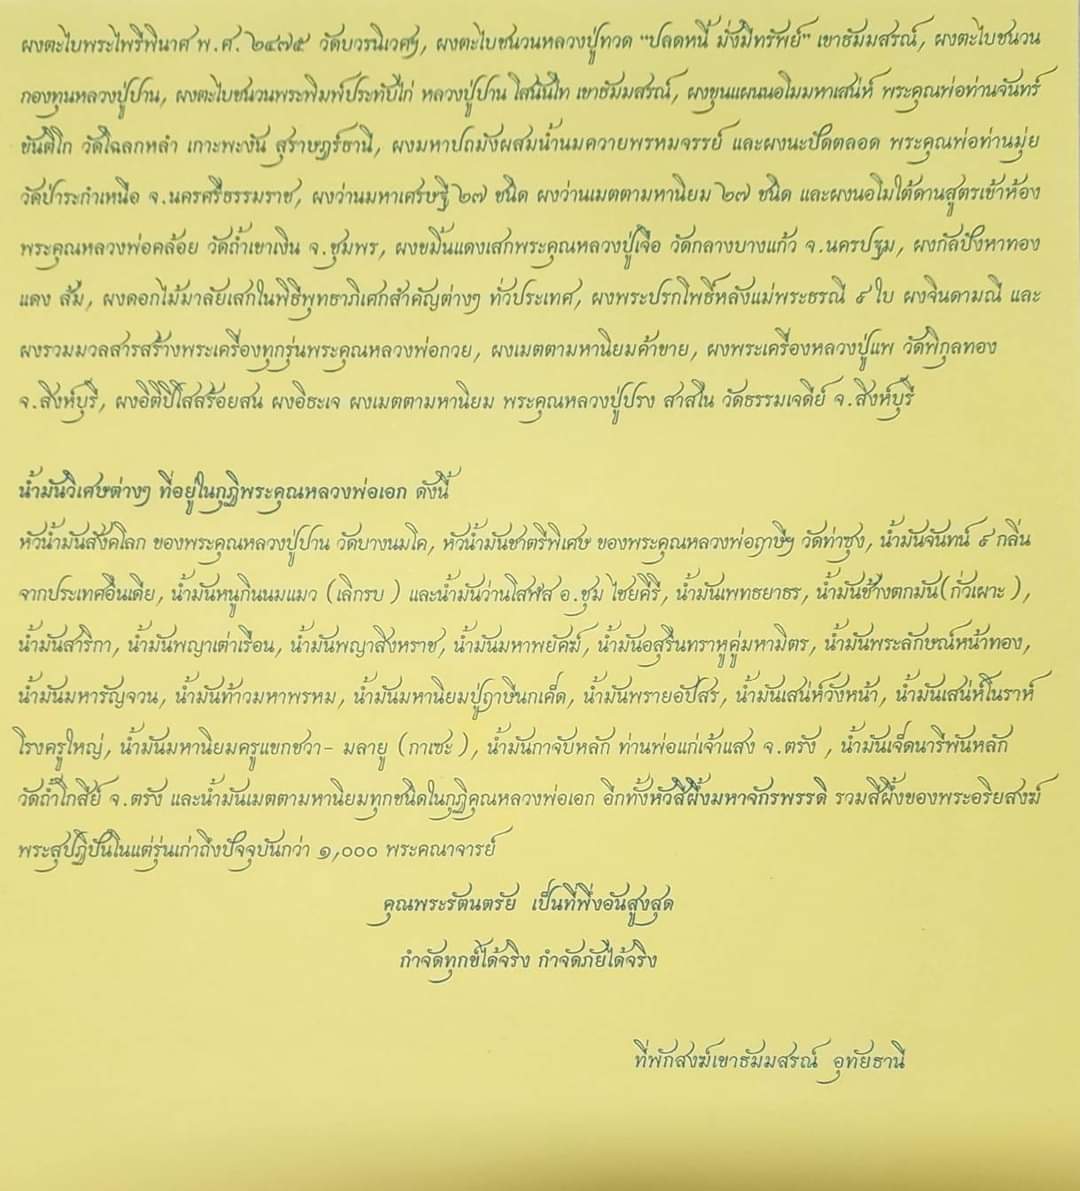 ผงตะไบพระไพรีพินาศ พ.ศ. ๒๔๙๕ วัดบวรนิเวศฯ, ผงตะไบชนวนหลวงปู่ทวด "ปลดหนี้ มั่งมีทรัพย์" เขาธัมมสรณ์, ผงตะไบชนวน
กองทุนหลวงปู่ปาน, ผงตะไบชนวนพระพิมพ์ประทับไก่ หลวงปู่ปาน โสนันโท เขาธัมมสรณ์, ผงขุนแผนนอโมมหาเสน่ห์ พระคุณพ่อท่านจันทร์
ขันติโก วัดโฉลกหลำ เกาะพะงัน สุราษฎร์ธานี, ผงมหาปถมังผสมน้ำนมควายพรหมจรรย์ และผงนะปัดตลอด พระคุณพ่อท่านมุ่ย
วัดป่าระกำเหนือ จ.นครศรีธรรมราช, ผงว่านมหาเศรษฐี ๒๗ ชนิด ผงว่านเมตตามหานิยม ๒๗ ชนิด และผงนอโมไต้ด้านสูตรเข้าห้อง
พระคุณหลวงพ่อคล้อย วัดถ้ำเขาเงิน จ.ชุมพร, ผงขมิ้นแดงเสกพระคุณหลวงปู่เจือ วัดกลางบางแก้ว จ.นครปฐม, ผงกัลปังหาทอง
แดง ส้ม, ผงดอกไม้มาลัยเสกในพิธีพุทธาภิเศกสำคัญต่างๆ ทั่วประเทศ, ผงพระปรกโพธิ์หลังแม่พระธรณี ๙ ใบ ผงจินดามณี และ
ผงรวมมวลสารสร้างพระเครื่องทุกรุ่นพระคุณหลวงพ่อกวย, ผงเมตตามหานิยมค้าขาย, ผงพระเครื่องหลวงปู่แพ วัดพิกุลทอง
จ.สิงห์บุรี, ผงอิติปิโสสร้อยสน ผงอิธะเจ ผงเมตตามหานิยม พระคุณหลวงปู่ปรง สาสโน วัดธรรมเจดีย์ จ.สิงห์บุรี
น้ำมันวิเศษต่างๆ ที่อยู่ในกุฏิพระคุณหลวงพ่อเอก ดังนี้
หัวน้ำมันสังคโลก ของพระคุณหลวงปู่ปาน วัดบางนมโค, หัวน้ำมันชาตรีพิเศษ ของพระคุณหลวงพ่อฤาษีฯ วัดท่าซุง, น้ำมันจันทน์ ๙ กลิ่น
จากประเทศอินเดีย, น้ำมันหนูกินนมแมว (เลิกรบ) และน้ำมันว่านโสฬส อ.ชุม ไชยคีรี, น้ำมันเพทธยาธร, น้ำมันช้างตกมัน(กั่วเผาะ),
น้ำมันสาริกา, น้ำมันพญาเต่าเรือน, น้ำมันพญาสิงหราช, น้ำมันมหาพยัคฆ์, น้ำมันอสุรินทราหูคู่มหามิตร, น้ำมันพระลักษณ์หน้าทอง,
น้ำมันมหารัญจวน, น้ำมันท้าวมหาพรหม, น้ำมันมหานิยมปู่ฤาษีนกเค็ด, น้ำมันพรายอัปสร, น้ำมันเสน่ห์วังหน้า, น้ำมันเสน่ห์โนราห์
โรงครูใหญ่, น้ำมันมหานิยมครูแขกชวา- มลายู (กาเซะ), น้ำมันกาจับหลัก ท่านพ่อแก่เจ้าแสง จ.ตรัง , น้ำมันเจ็ดนารีพันหลัก
วัดถ้ำโกสีย์ จ.ตรัง และน้ำมันเมตตามหานิยมทุกชนิดในกุฏิคุณหลวงพ่อเอก อีกทั้งหัวสีผึ้งมหาจักรพรรดิ รวมสีผึ้งของพระอริยสงฆ์
พระสุปฏิปันโนแต่รุ่นเก่าถึงปัจจุบันกว่า ๑,๐๐๐ พระคณาจารย์
คุณพระรัตนตรัย เป็นที่พึ่งอันสูงสุด
กำจัดทุกข์ได้จริง กำจัดภัยได้จริง
ที่พักสงฆ์เขาธัมมสรณ์ อุทัยธานี